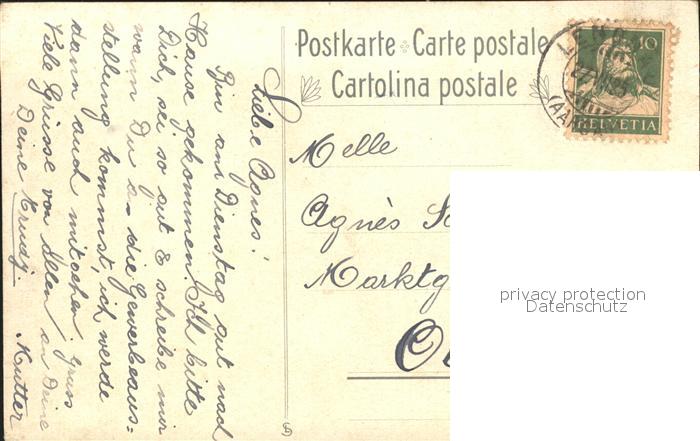 Postkarte Carte postale
Cartolina postale
10
HELVETIA
Liebe Agnes!
Bin am Dienstag gut nach
Hause gekommen. Ich bitte
Dich, sei so gut & schreibe mir
wann Du a- die Gewerbeaus=
stellung kommst, ich werde
dann auch mitgehen. Gruss
Viele Grüsse von Allen an Deine
Deine Trudj. Mutter
Melle
Agnès
Marktg
privacy protection
Datenschutz